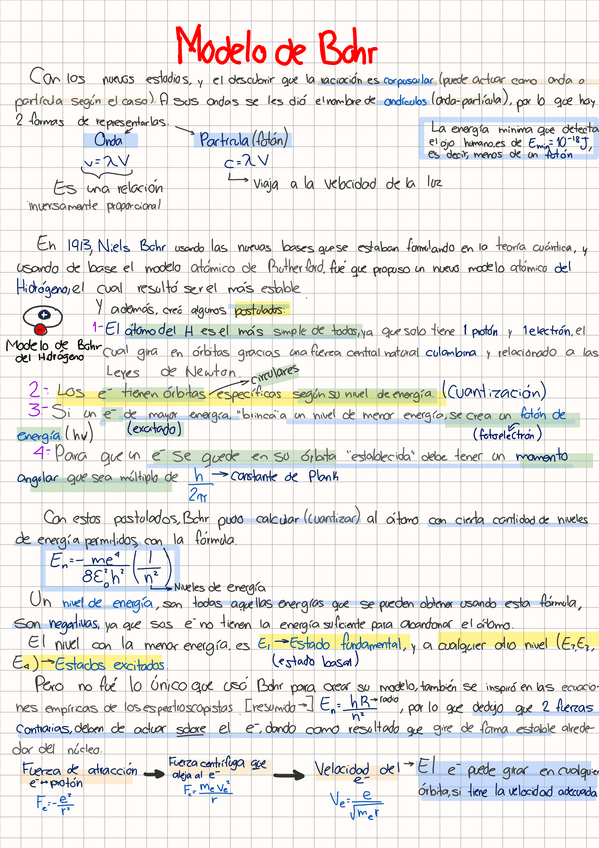 Modelo de Bohr
Con los nuevos estudios, y el descubrir que la raciación es corpuscular (puede actuar como onda o
partícula según el caso). A sus ondas se les dió el nombre de ondículas (onda-partícula), por lo que hay
2 formas de representarlas.
Onda
v=λV
Es una relación
inversamente proporcional
Partícula (fotón)
c=λV
Viaja a la velocidad de la luz
La energía mínima que detecta
el ojo humano, es de Emin=10⁻¹⁸J,
es decir, menos de un fotón
En 1913, Niels Bohr usando las nuevas bases que se estaban formulando en la teoría cuántica, y
usando de base el modelo atómico de Rutherford, fué que propuso un nuevo modelo atómico del
Hidrógeno, el cual resultó ser el más estable.
Y además, creó algunos postulados:
Modelo de Bohr
del Hidrógeno
1- El átomo del H es el más simple de todos, ya que solo tiene 1 protón y 1 electrón, el
cual gira en órbitas gracias una fuerza central natural culombina y relacionado a las
Leyes de Newton.
circulares
2- Los e⁻ tienen órbitas específicas según su nivel de energía. (Cuantización)
3- Si un e⁻ de mayor energía, "brinca" a un nivel de menor energía, se crea un fotón de
(excitado)
energía (hv)
(fotoelectrón)
4- Para que un e⁻ se quede en su órbita "establecida" debe tener un momento
angular que sea múltiplo de h/2π → constante de Plank
Con estos postulados, Bohr pudo calcular (cuantizar) al átomo con cierta cantidad de niveles
de energía permitidos, con la fórmula.
En=-me⁴/8ε₀²h² (1/n²)
Niveles de energía
Un nivel de energía, son todas aquellas energías que se pueden obtener usando esta fórmula,
son negativas, ya que sas e⁻ no tienen la energía suficiente para abandonar el átomo.
El nivel con la menor energía, es E₁→Estado fundamental, y a cualquier otro nivel (E₂,E₃,
(estado basal)
E₄)→Estados excitados.
Pero no fué lo único que usó Bohr para crear su modelo, también se inspiró en las ecuacio-
nes empíricas de los espectroscopistas [resumido→] En=-hR/n², por lo que dedujo que 2 fuerzas
contrarias, deben de actuar sobre el e⁻, dando como resultado que gire de forma estable alrede-
dor del núcleo.
Fuerza de atracción
e⁻↔protón
Fe=-e²/r²
Fuerza centrífuga que
aleja al e⁻
Fc=meVe²/r
Velocidad del
e⁻
Ve=e/√mer
El e⁻ puede girar en cualquier
órbita, si tiene la velocidad adecuada